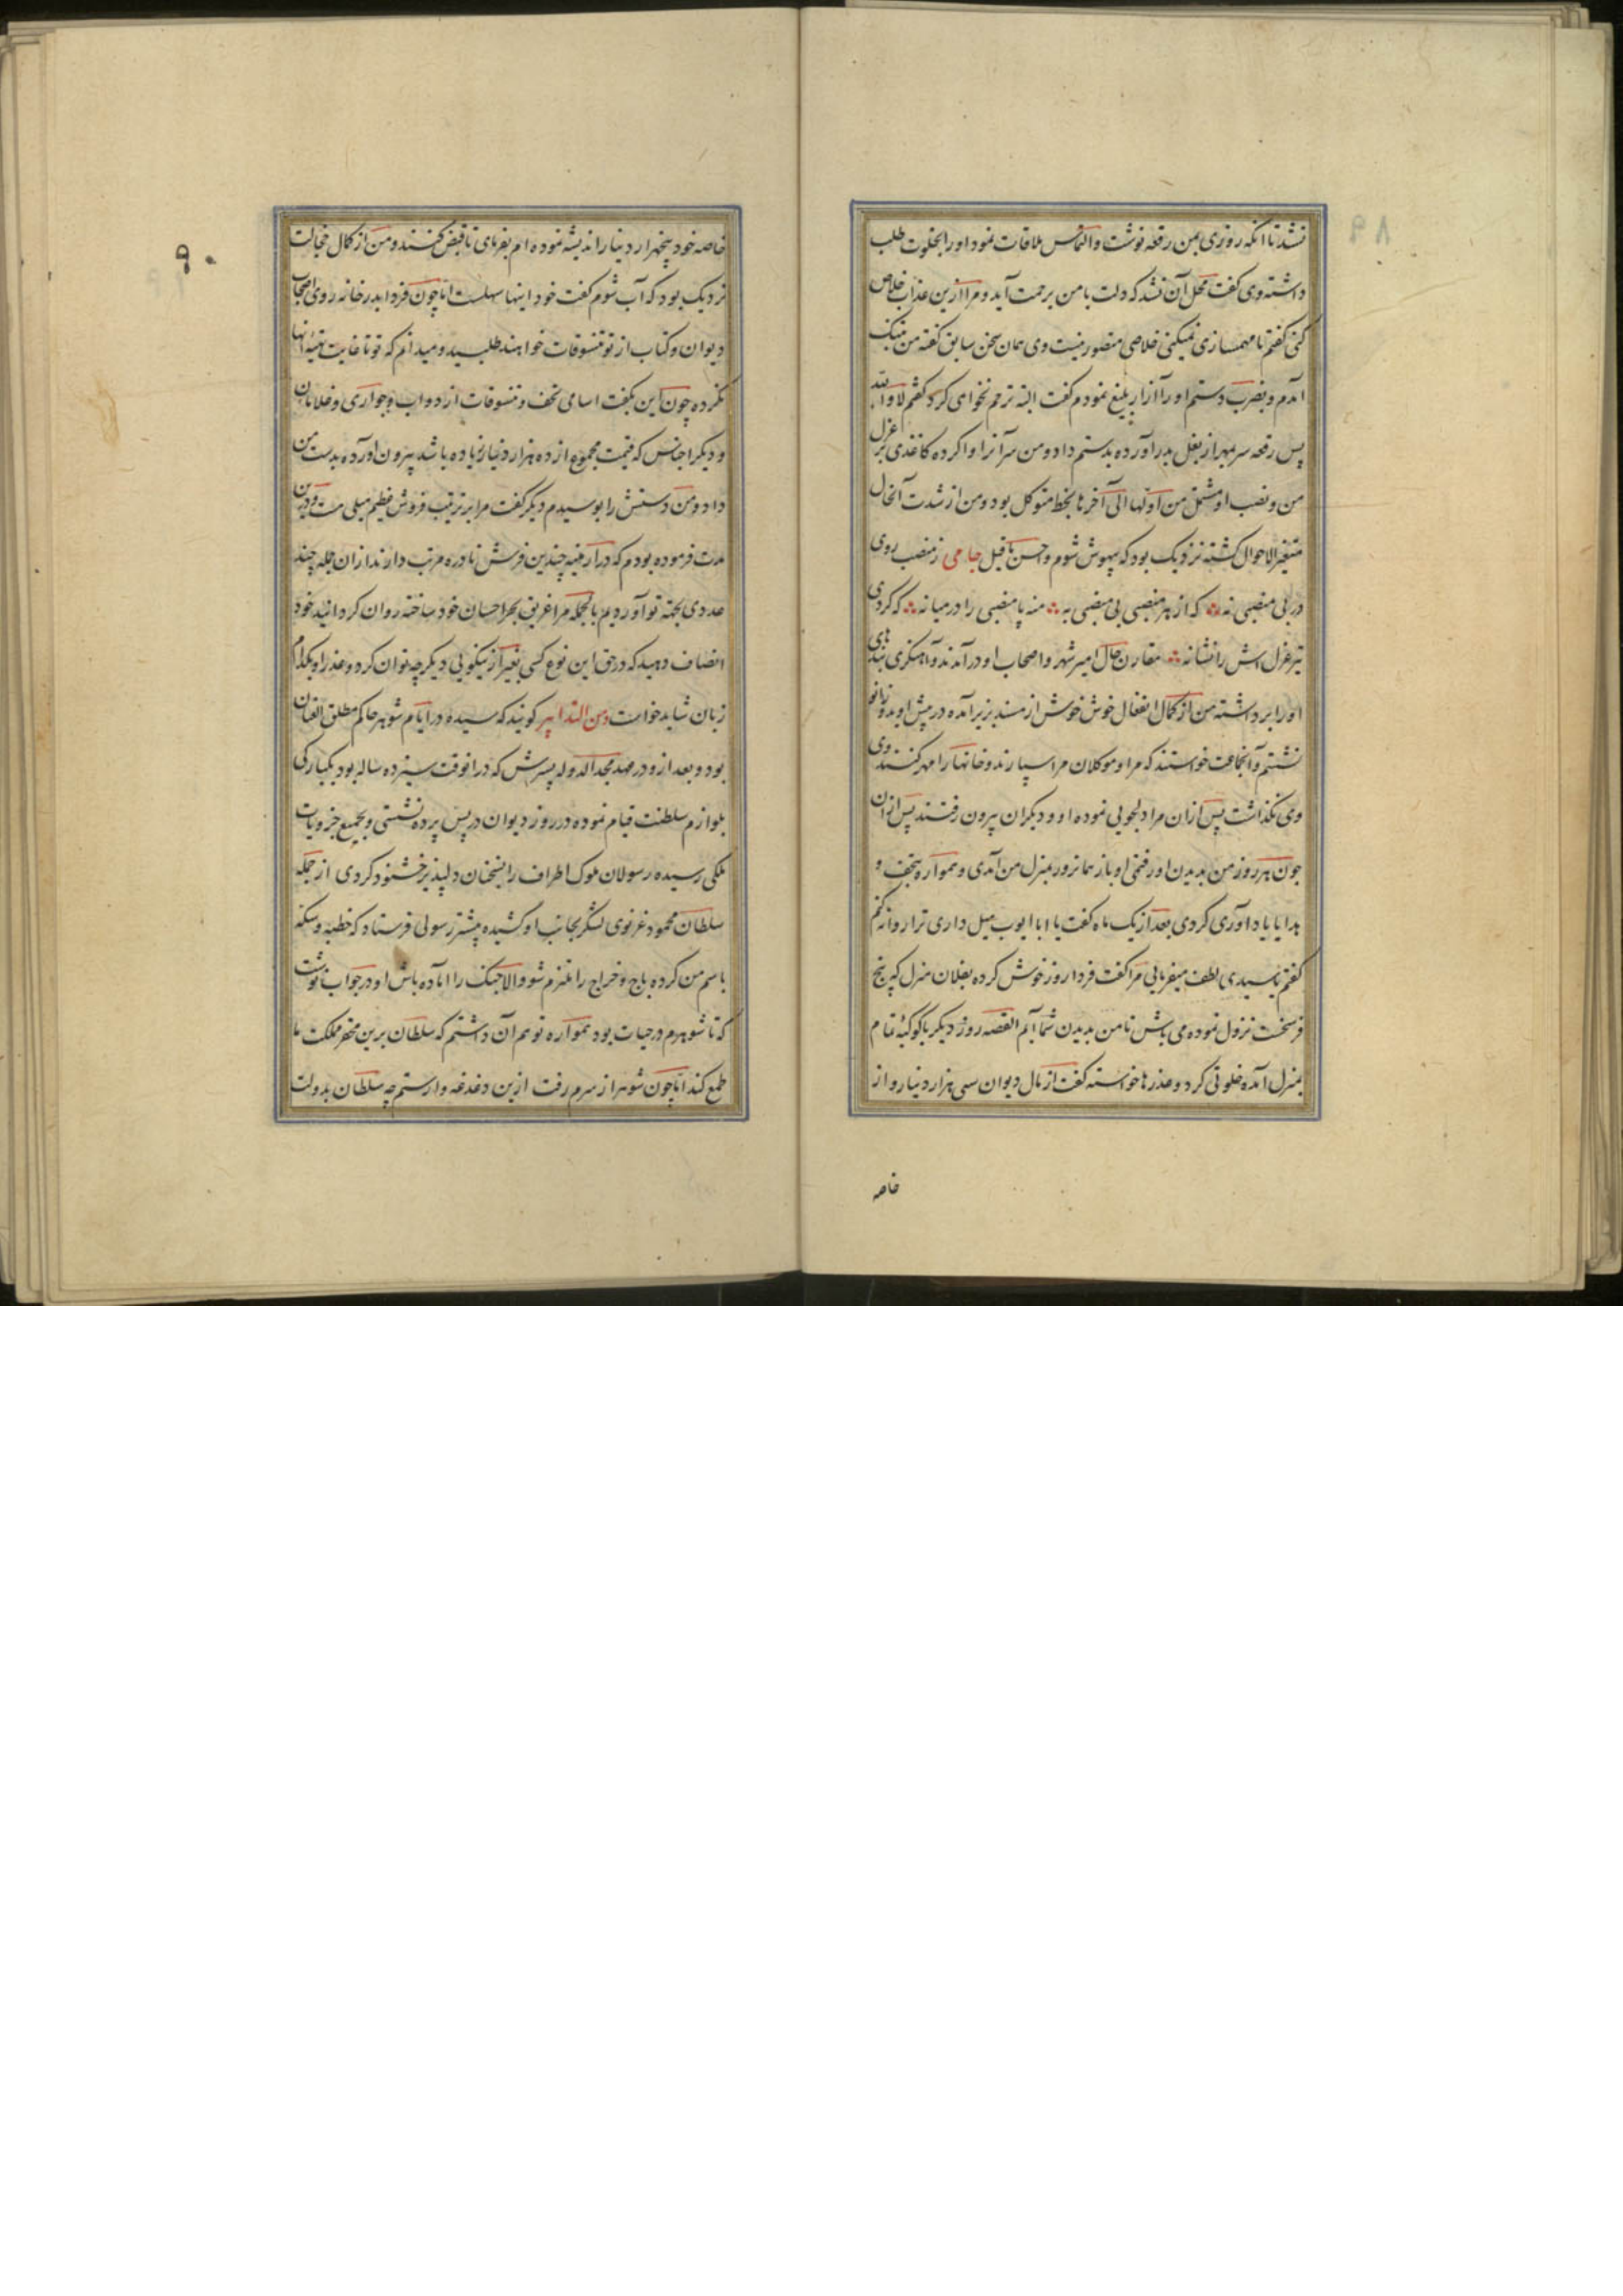 ۸۹
نشد تا انکه روزی بمن رقعه نوشت و التماس ملاقات نمود اورا بخلوت طلب
داشته وی گفت محل آن نشد که دلت با من برحمت آید و مرا ازین عذاب خلاص
کنی گفتم تا مهمسازی نمیکنی خلاصی متصور نیست وی همان سخن سابق گفته من بتنک
آمدم و بضرب دستم اورا آزار بلیغ نمودم گفت البته ترحم نخواهی کرد گفتم لا والله
پس رقعه سر بمهر از بغل بدر آورده بدستم داد و من سر آنرا وا کرده کاغذی بر عزل
من و نصب او مشتمل من اولها الی آخرها بخط متوکل بود و من از شدت آنحال
متغیر الاحوال گشته نزدیک بود که بیهوش شوم و احسن ما قیل جامی ز منصب روی
در بی منصبی نه که از هر منصبی بی منصبی به منه پا منصبی را در میانه که گردی
تیر عزل اش را نشانه مقارن حال امیر شهر و اصحاب او در آمدند و آهنگری بندهای
اورا برداشته من از کمال انفعال خوش خوش از مسند بزیر آمده در پیش او بدو زانو
نشستم و آنجماعت خواستند که مرا و موکلان مرا سپارند و خانها را مهر کنند وی
وی نگذاشت پس ازان مرا دلجویی نموده او و دیگران بیرون رفتند پس ازان
چون هر روز من بدیدن او رفتمی او باز همانروز بمنزل من آمدی و همواره بتحف و
هدایا یاد آوری کردی بعد از یک ماه گفت یا ابا ایوب میل داری ترا روانه کنم
گفتم یا سیدی لطف میفرمایی مرا گفت فردا روز خوش کرده بفلان منزل که پنج
فرسخست نزول نموده می باش تا من بدیدن شما آیم القصه روز دیگر با کوکبه تمام
بمنزل آمده خلوتی کرد و عذرها خواسته گفت از مال دیوان سی هزار دینار و از
خاصه
۹۰
خاصه خود پنجهزار دینار اندیشه نموده ام بفرمای تا قبض کنند و من از کمال خجالت
نزدیک بود که آب شوم گفت خود اینها سهلست اما چون فردا بدر خانه روی اصحاب
دیوان و کتاب از تو تنسوقات خواهند طلبید و میدانم که تو تا غایت تهیه آنها
نکرده چون این بگفت اسامی تحف و تنسوقات از دواب و جواری و غلامان
و دیگر اجناس که قیمت مجموع از ده هزار دینار زیاده باشد بیرون آورده بدست من
داد و من دستش را بوسیدم دیگر گفت مرا بر ترتیب فروش عظیم میلی هست و درین
مدت فرموده بودم که در ارمنیه چندین فرش نادره مرتب دارند ازان جمله چند
عددی بجهة تو آوردیم بالجمله مرا غریق بحر احسان خود ساخته روان کرد انید خود
انصاف دهید که در حق این نوع کسی بغیر از نیکویی دیگر چه توان کرد و عذر او بکدام
زبان شاید خواست و من التدابیر گویند که سیده در ایام شوهر حاکم مطلق العنان
بود و بعد ازو در عهد مجد الدوله پسرش که درانوقت سیزده ساله بود بیکبارگی
بلوازم سلطنت قیام نموده در روز دیوان در پس پرده نشستی و بجمیع جزویات
ملکی رسیده رسولان ملوک اطراف را بسخنان دلپذیر خشنود کردی از جمله
سلطان محمود غزنوی لشکر بجانب او کشیده پیشتر رسولی فرستاد که خطبه و سکه
باسم من کرده باج و خراج را ملتزم شو و الا جنک را آماده باش او در جواب نوشت
که تا شوهرم در حیات بود همواره توهم آن داشتم که سلطان برین محقر مملکت ما
طمع کند اما چون شوهر از سرم رفت ازین دغدغه وارستم چه سلطان بدولت